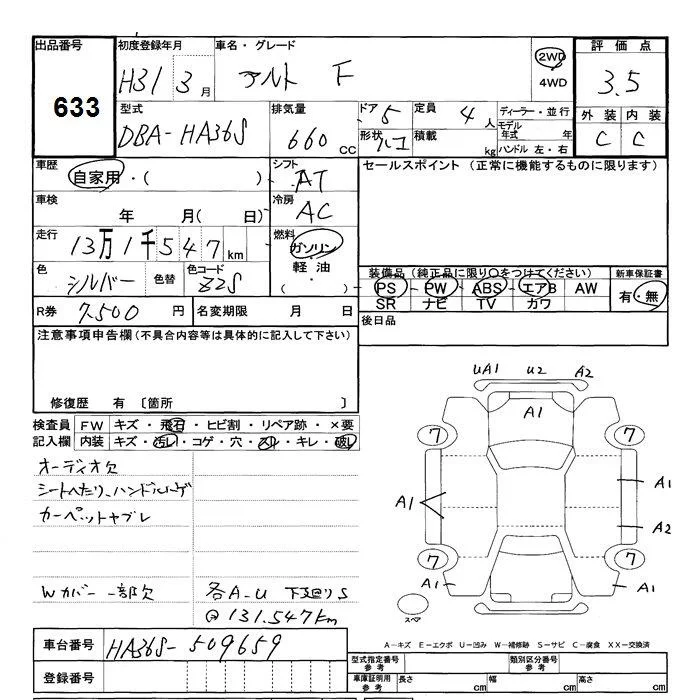 出品番号 初度登録年月 車名・グレード 評価点
633
H31 3月 アルト F 2WD 4WD 3.5
型式 排気量 ドア 5 定員 4人 ディーラー・並行 外装 内装
DBA-HA36S 660cc 形状 積載 kg モデル年式 年 C C
ハンドル 左・右
車歴 自家用・( ) シフト AT セールスポイント (正常に機能するものに限ります)
車検 年 月( 日) 冷房 AC
走行 13万1千547km 燃料 ガソリン・軽油・( )
色 シルバー 色替 色コード Z2S
装備品(純正品に限り○をつけてください) 新車保証書
PS・PW・ABS・エアB AW 有・無
SR ナビ TV カワ
R券 7,500円 名変期限 月 日
後日品
注意事項申告欄(不具合内容等は具体的に記入して下さい)
修復歴 有 〔箇所 〕
検査員記入欄 FW キズ・飛石・ヒビ割・リペア跡・×要
内装 キズ・汚レ・コゲ・穴・スレ・キレ・破レ
オーディオ欠
シートヘたり、ハンドルハゲ
カーペットヤブレ
Wカバー 一部欠 各A-U 下廻りS
@131,547km
UA1 U2 A2
A1
7 7
A1 A1
A2
7 7
A1 A1
スペア
A-キズ E-エクボ U-凹み W-補修跡 S-サビ C-腐食 XX-交換済
車台番号 HA36S-509659
登録番号
型式指定番号 参考 類別区分番号 参考
車庫証明用 参考 長さ cm 幅 cm 高さ cm